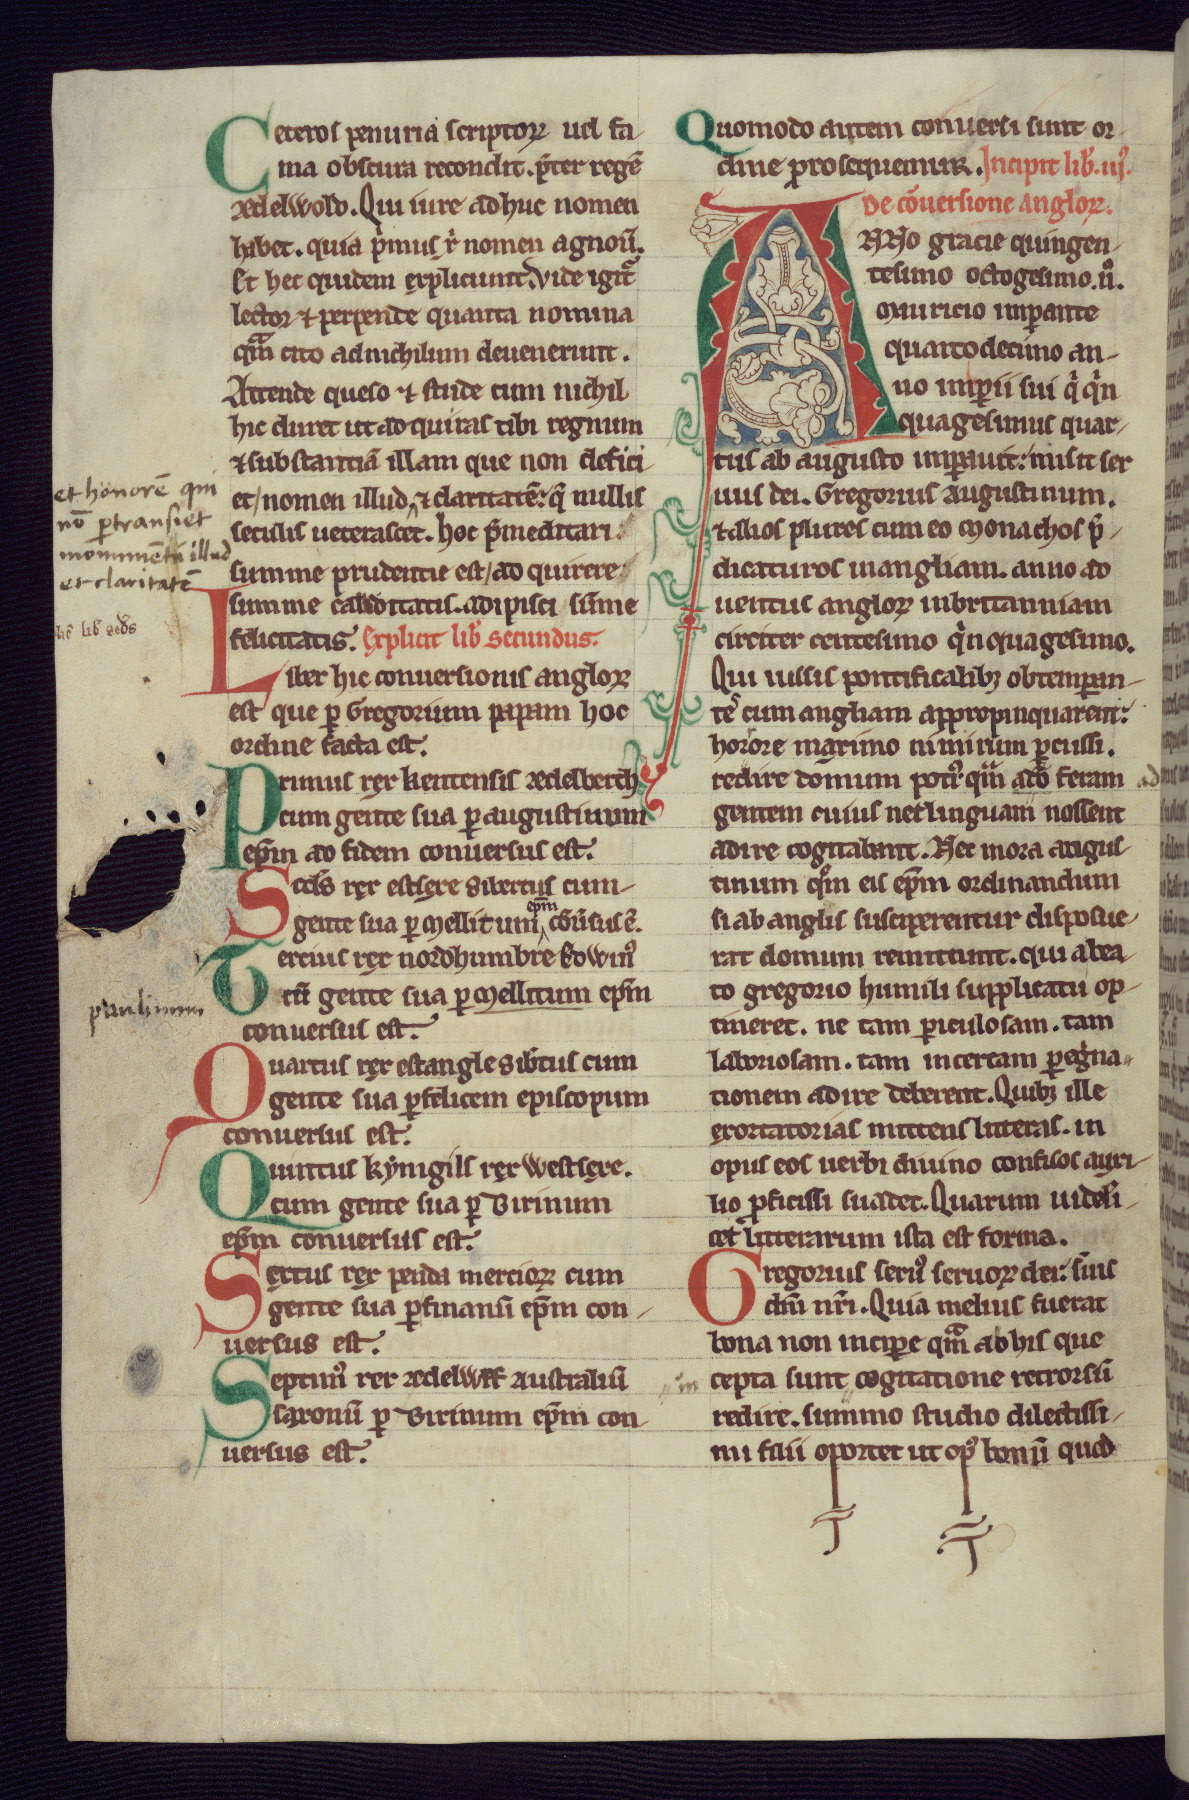 Ceteros penuria scriptoꝝ uel fa-
ma obscura recondit. p̄ter regē
ædelwold. Qui iure adhuc nomen
habet. quia p̍mus x̄ nomen agnou̅.
Et hec quidem expliciunt. Vide igit̃
lector ⁊ perpende quanta nomina
qm̄ cito adnichilum deuenerunt.
Attende queso ⁊ stude cum nichil
hic duret ut adquiras tibi regnum
⁊ substantiā illam que non defici-
et/ nomen illud ⁊ claritatē: q̄ nullis
seculis ueterascet. hoc p̄meditari
summe prudentie est/ adquirere
summe calliditatis. adipisci sūme
felicitatis. Explicit lib̄ secundus.
Liber hic conuersionis angloꝝ
est que ꝑ Gregorium papam hoc
ordine facta est.
Primus rex kentensis ædelberth
cum gente sua ꝑ augustinum
ep̄m ad fidem conuersus est.
Scd̄s rex estsexe Sibertus cum-
gente sua ꝑ Mellitum ep̄m cōuersus ē.
Tercius rex nordhumbre Edwin᷒
cū gente sua ꝑ Mellitum ep̄m
conuersus est.
Quartus rex estangle Sib̄tus cum
gente sua ꝑ felicem episcopum
conuersus est.
Quintus kynigils rex westsexe.
cum gente sua ꝑ Birinum
ep̄m conuersus est.
Sextus rex penda mercioꝝ cum
gente sua ꝑ finanū ep̄m con-
uersus est.
Septim᷒ rex ædelwlf australiū
saxonū ꝑ Birinum ep̄m con-
uersus est.
et honorē qui
nō ꝑtransiet
monumētū illud
et claritatē
paulinum
Quomodo autem conuersi sunt or-
dine prosequemur. Incipit lib̄. iij᷒.
De cōuersione Angloꝝ.
ANno gracie quingen-
tesimo octogesimo. ii᷒.
Mauricio imꝑante
quartodecimo an-
no imꝑii sui q̍ q̍n
quagesimus quar-
tus ab augusto imꝑauit: misit ser
uus dei. Gregorius Augustinum.
⁊ alios plures cum eo monachos p̄-
dicaturos in angliam. anno ad
uentus angloꝝ in britanniam
circiter centesimo q̍nquagesimo.
Qui iussis pontificalibꝫ obtemꝑan-
tes cum angliam appropinquarent:
horrore maximo nimirum ꝑcussi.
redire domum poti᷒ qm̄ ad feram
gentem cuius nec linguam nossent
adire cogitabant. Nec mora augus-
tinum qm̄ eis ep̄m ordinandum
si ab anglis susciperentur disposue-
rat domum remittunt. qui a bea-
to gregorio humili supplicatu op-
tineret. ne tam ꝑiculosam. tam
laboriosam. tam incertam ꝑegrina-
tionem adire deberent. Quibꝫ ille
exortatorias mittens litteras. in
opus eos uerbi diuino confisos auxi-
lio ꝓficisci suadet. Quarum uideli-
cet litterarum ista est forma.
Gregorius seru᷒ seruoꝝ dei: suis
dn̄i nr̄i. Quia melius fuerat
bona non inciꝑe qm̄ ab his que
cepta sunt cogitatione retrorsū
redire. summo studio dilectissi-
mi filii oportet ut op᷒ bonū quod